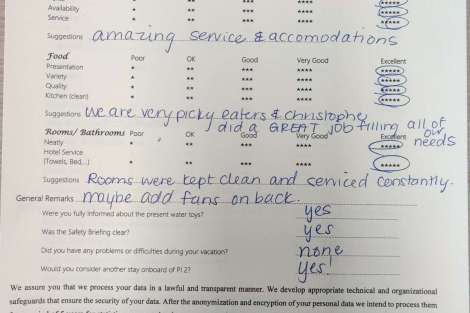 Availability * ** *** **** *****
Service * ** *** **** *****
Suggestions amazing service & accomodations
Food Poor OK Good Very Good Excellent
Presentation * ** *** **** *****
Variety * ** *** **** *****
Quality * ** *** **** *****
Kitchen (clean) * ** *** **** *****
Suggestions We are very picky eaters & christophe
did a GREAT job filling all of
our
needs
Rooms/ Bathrooms Poor OK Good Very Good Excellent
Neatly * ** *** **** *****
Hotel Service
(Towels, Bed...) * ** *** **** *****
Suggestions Rooms were kept clean and serviced constantly.
General Remarks maybe add fans on back.
Were you fully informed about the present water toys? yes
Was the Safety Briefing clear? yes
Did you have any problems or difficulties during your vacation? none
Would you consider another stay onboard of PI 2? yes!
We assure you that we process your data in a lawful and transparent manner. We develop appropriate technical and organizational
safeguards that ensure the security of your data. After the anonymization and encryption of your personal data we intend to process them